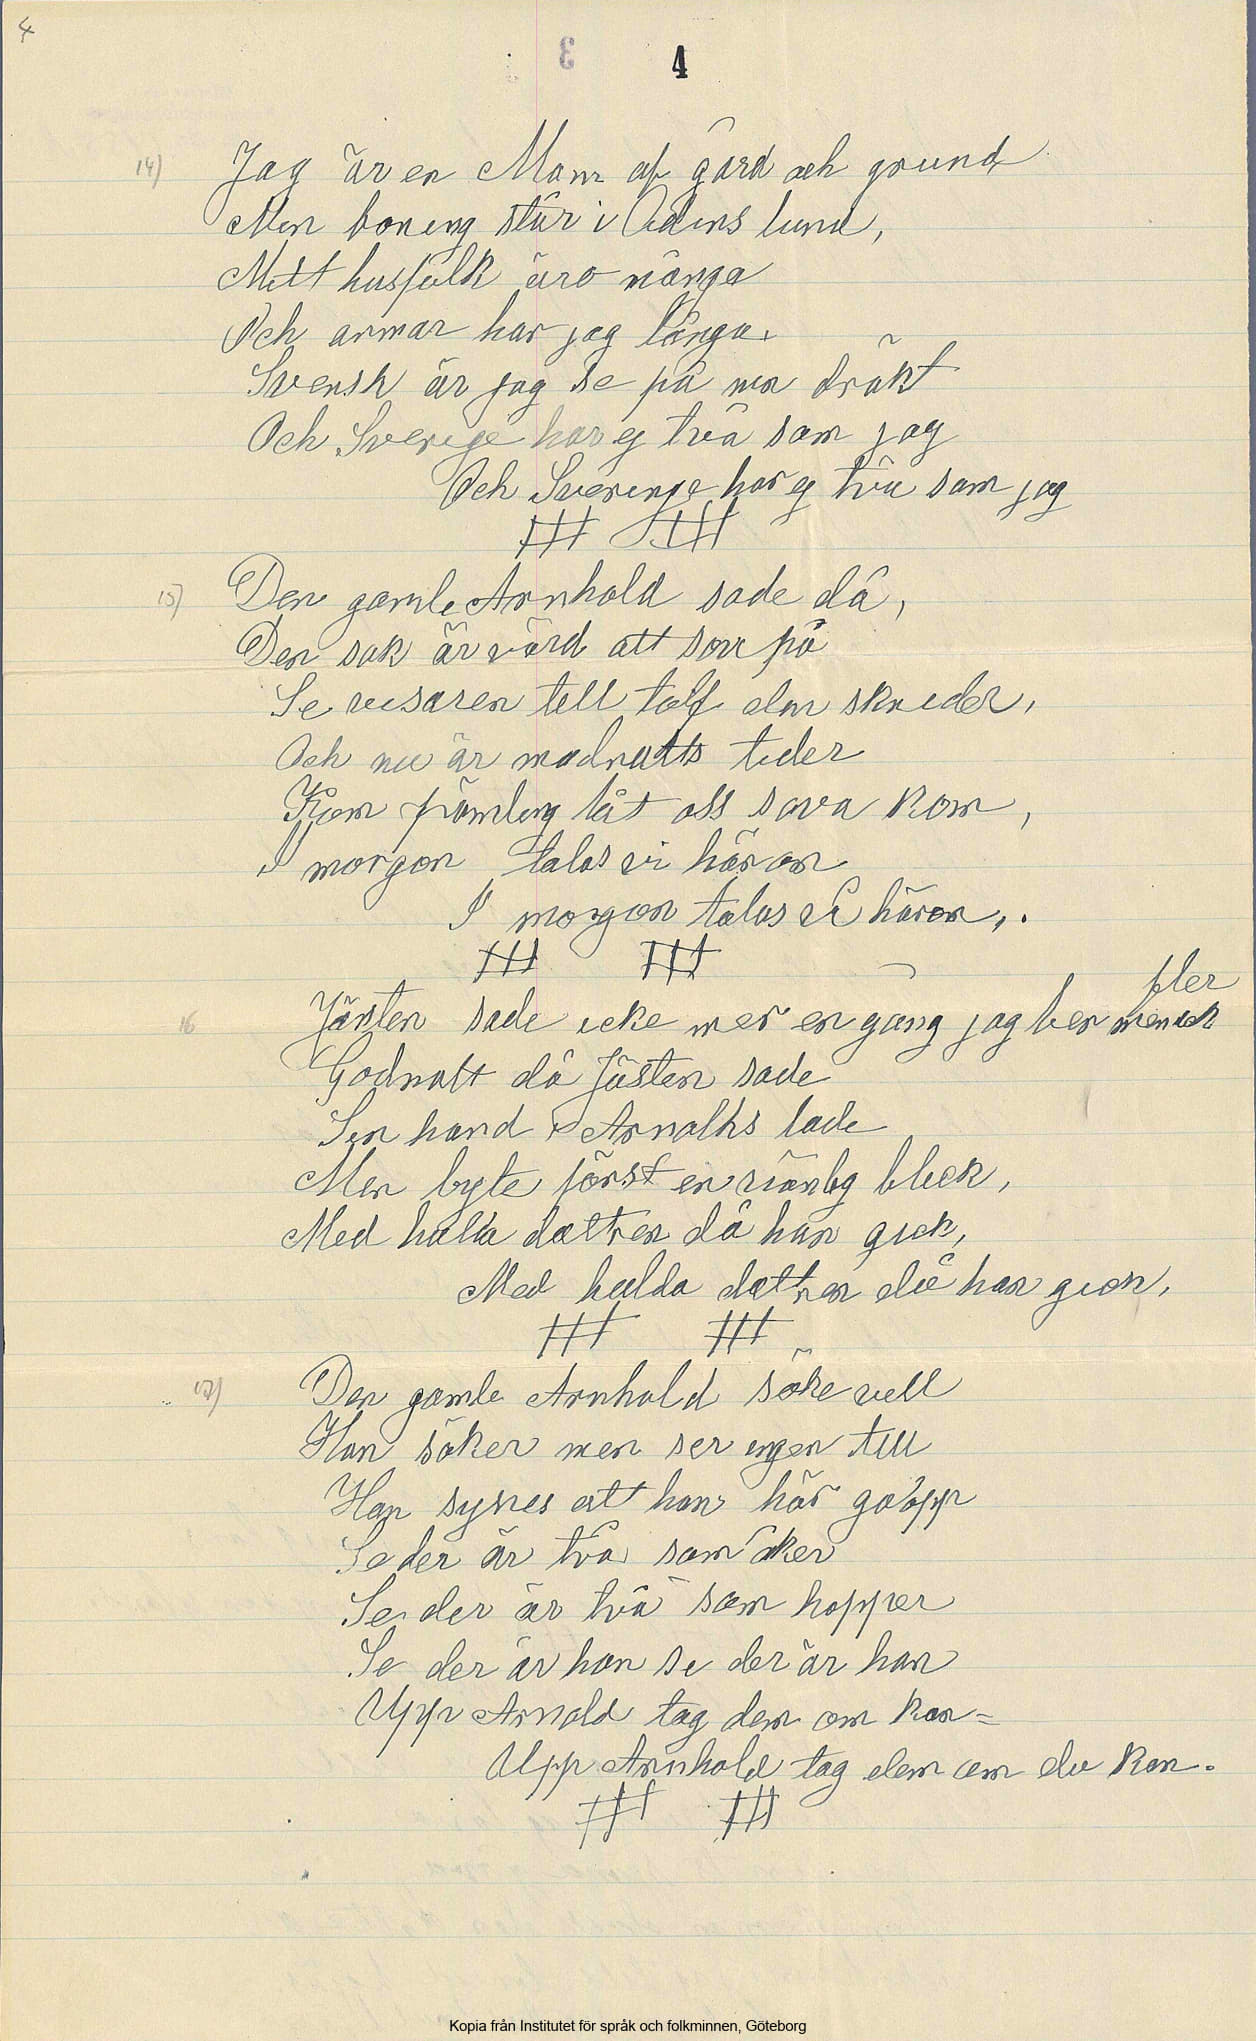 4
3
4
14)
Jag är en Man af gård och grund
Men boning står i Odins lund,
Mitt husfolk äro många
Och armar har jag långa.
Svensk är jag se på min dräkt
Och Sverige har ej två som jag
Och Sveringe har ej två som jag
15)
Den gamle Arnhold sade då,
Den sak är värd att sova på
Se visaren till tolf den skrider,
Och nu är midnatts tider
Kom främling låt oss sova kom,
I morgon talas vi härom
I morgon talas vi härom,.
16
fler
Gästen sade icke mer en gång jag ber
Godnatt då Gästen sade
Sin hand i Arnolds lade
Men byte först en vänlig blick,
Med hulda dottren då han gick,
Med hulda dottren då han gick,
17)
Den gamle Arnhold söke vill
Han söker men ser ingen till
Han synes att han här gå opp
Se der är två som åker
Se der är två som hopper
Se der är han se der är han
Upp Arnold tag dem om kan=
Upp Arnhold tag dem om du kan.
Kopia från Institutet för språk och folkminnen, Göteborg